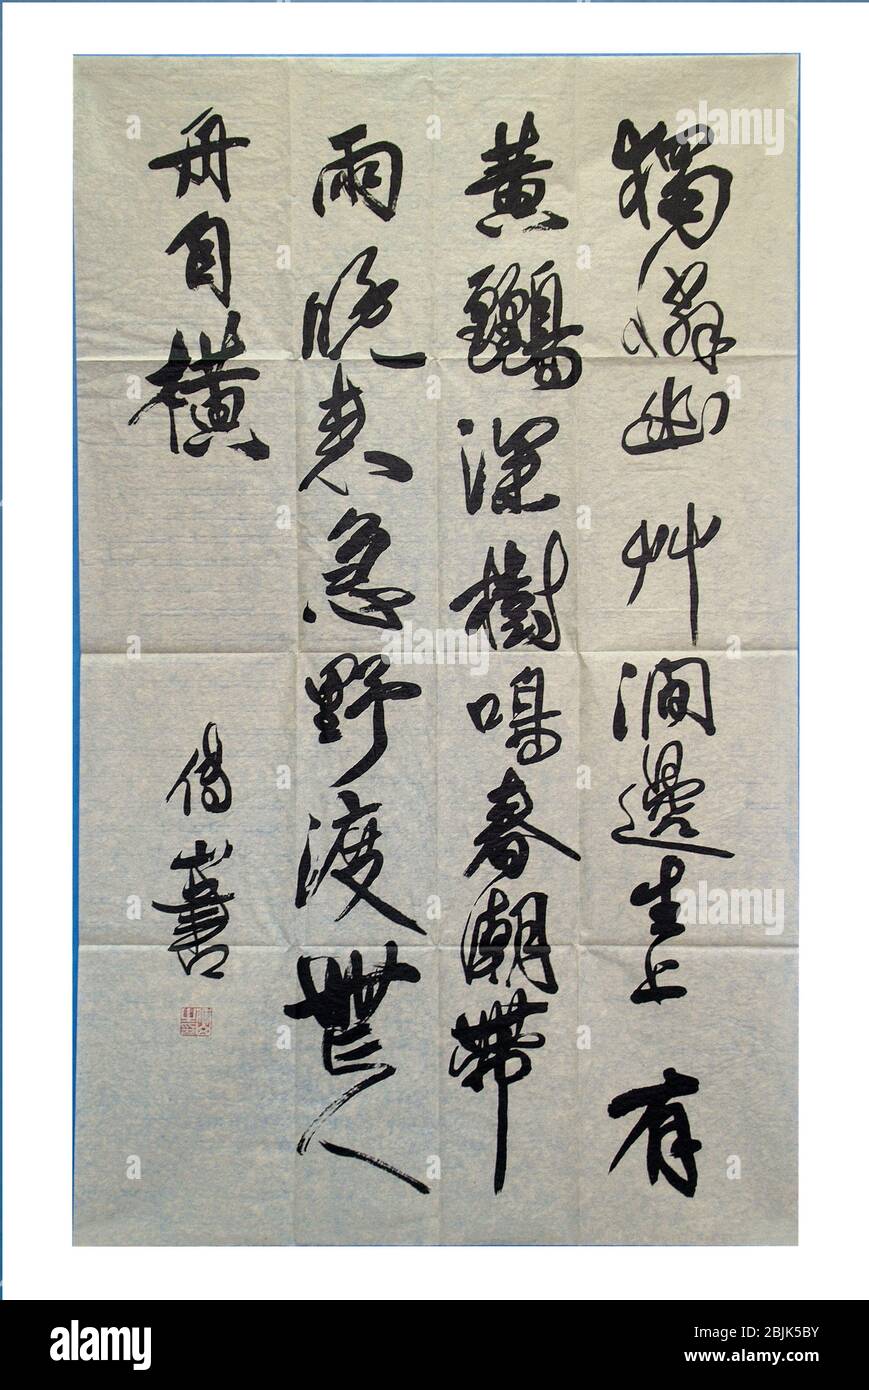 獨憐幽艸澗邊生上有
黃鸝深樹鳴春潮帶
雨晚来急野渡無人
舟自橫
書
alamy
Image ID: 2BJK5BY
www.alamy.com